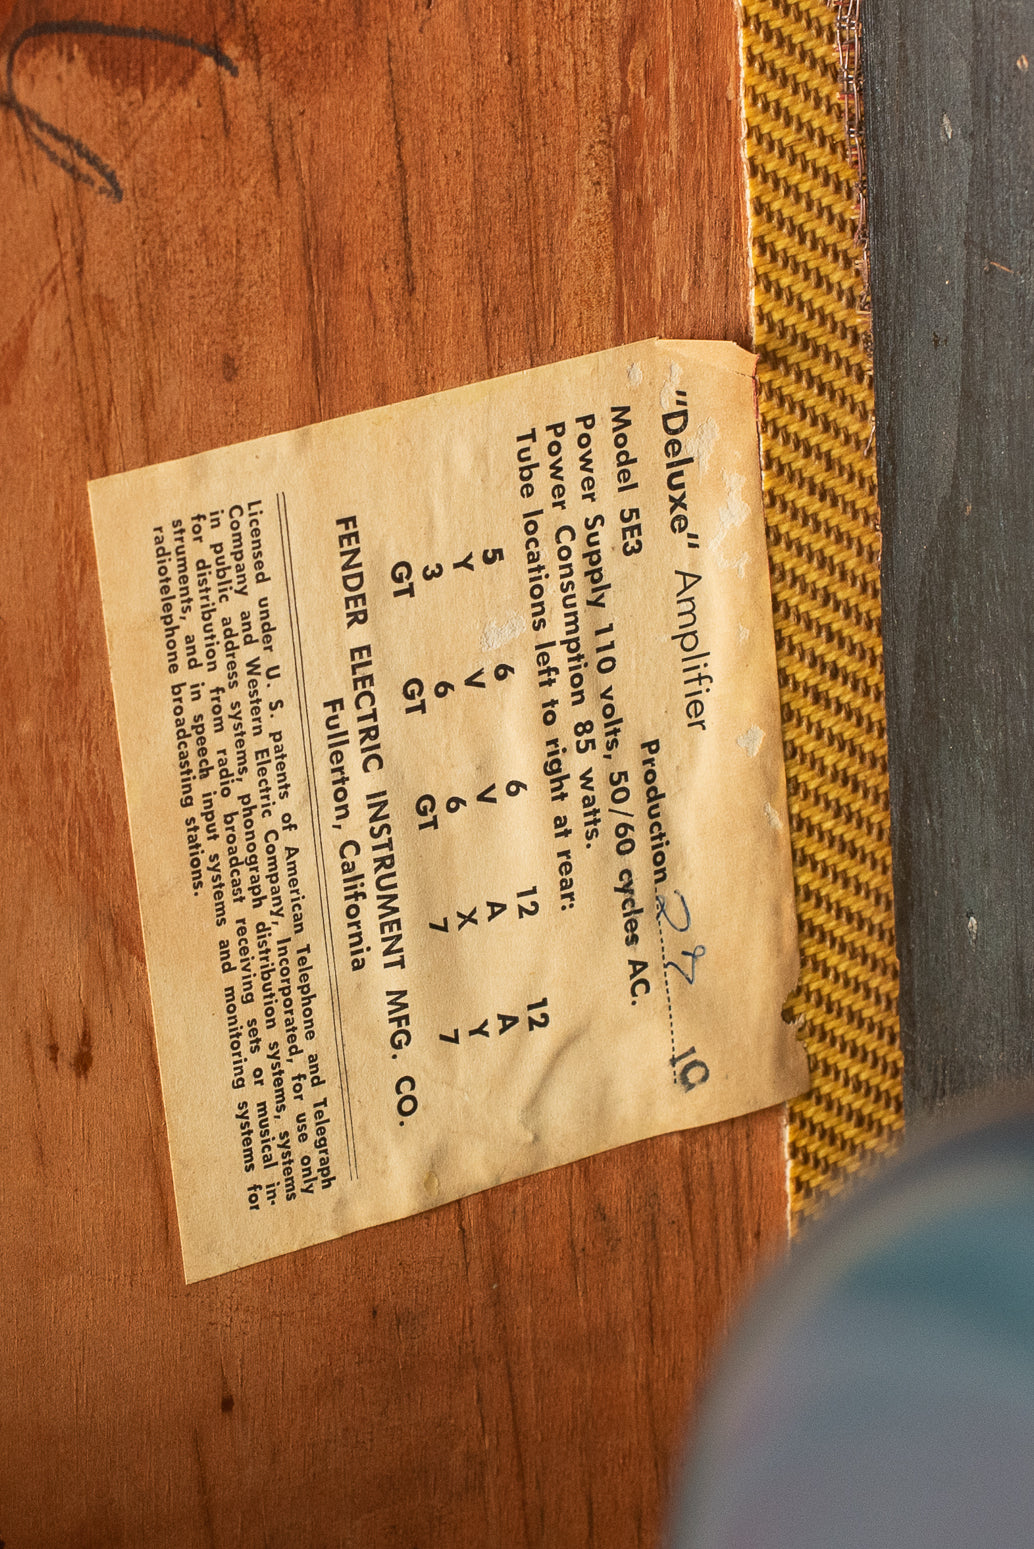 "Deluxe" Amplifier
Model 5E3
Production
Power Supply 110 volts, 50/60 cycles AC.
Power Consumption 85 watts.
Tube locations left to right at rear:
5 6 6 12 12
Y V V A A
3 6 6 X Y
GT GT GT 7 7
FENDER ELECTRIC INSTRUMENT MFG. CO.
Fullerton, California
Licensed under U. S. patents of American Telephone and Telegraph
Company and Western Electric Company, Incorporated, for use only
in public address systems, phonograph distribution systems, systems
for distribution from radio broadcast receiving sets or musical in-
struments, and in speech input systems and monitoring systems for
radiotelephone broadcasting stations.